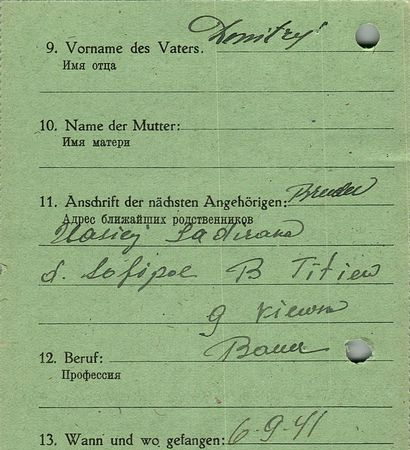 9. Vorname des Vaters. Dmitry
Имя отца
10. Name der Mutter:
Имя матери
11. Anschrift der nächsten Angehörigen: Bruder
Адрес ближайших родственников
d. Sofipol B Titiew
g Kiewsk
12. Beruf: Bauer
Профессия
13. Wann und wo gefangen: 6-9-41